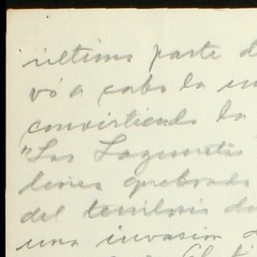 ultima parte d
vó a cabo la in
convirtiendo la
"Las Lagunitas
linea quebrada
del territorio de
una invasion d